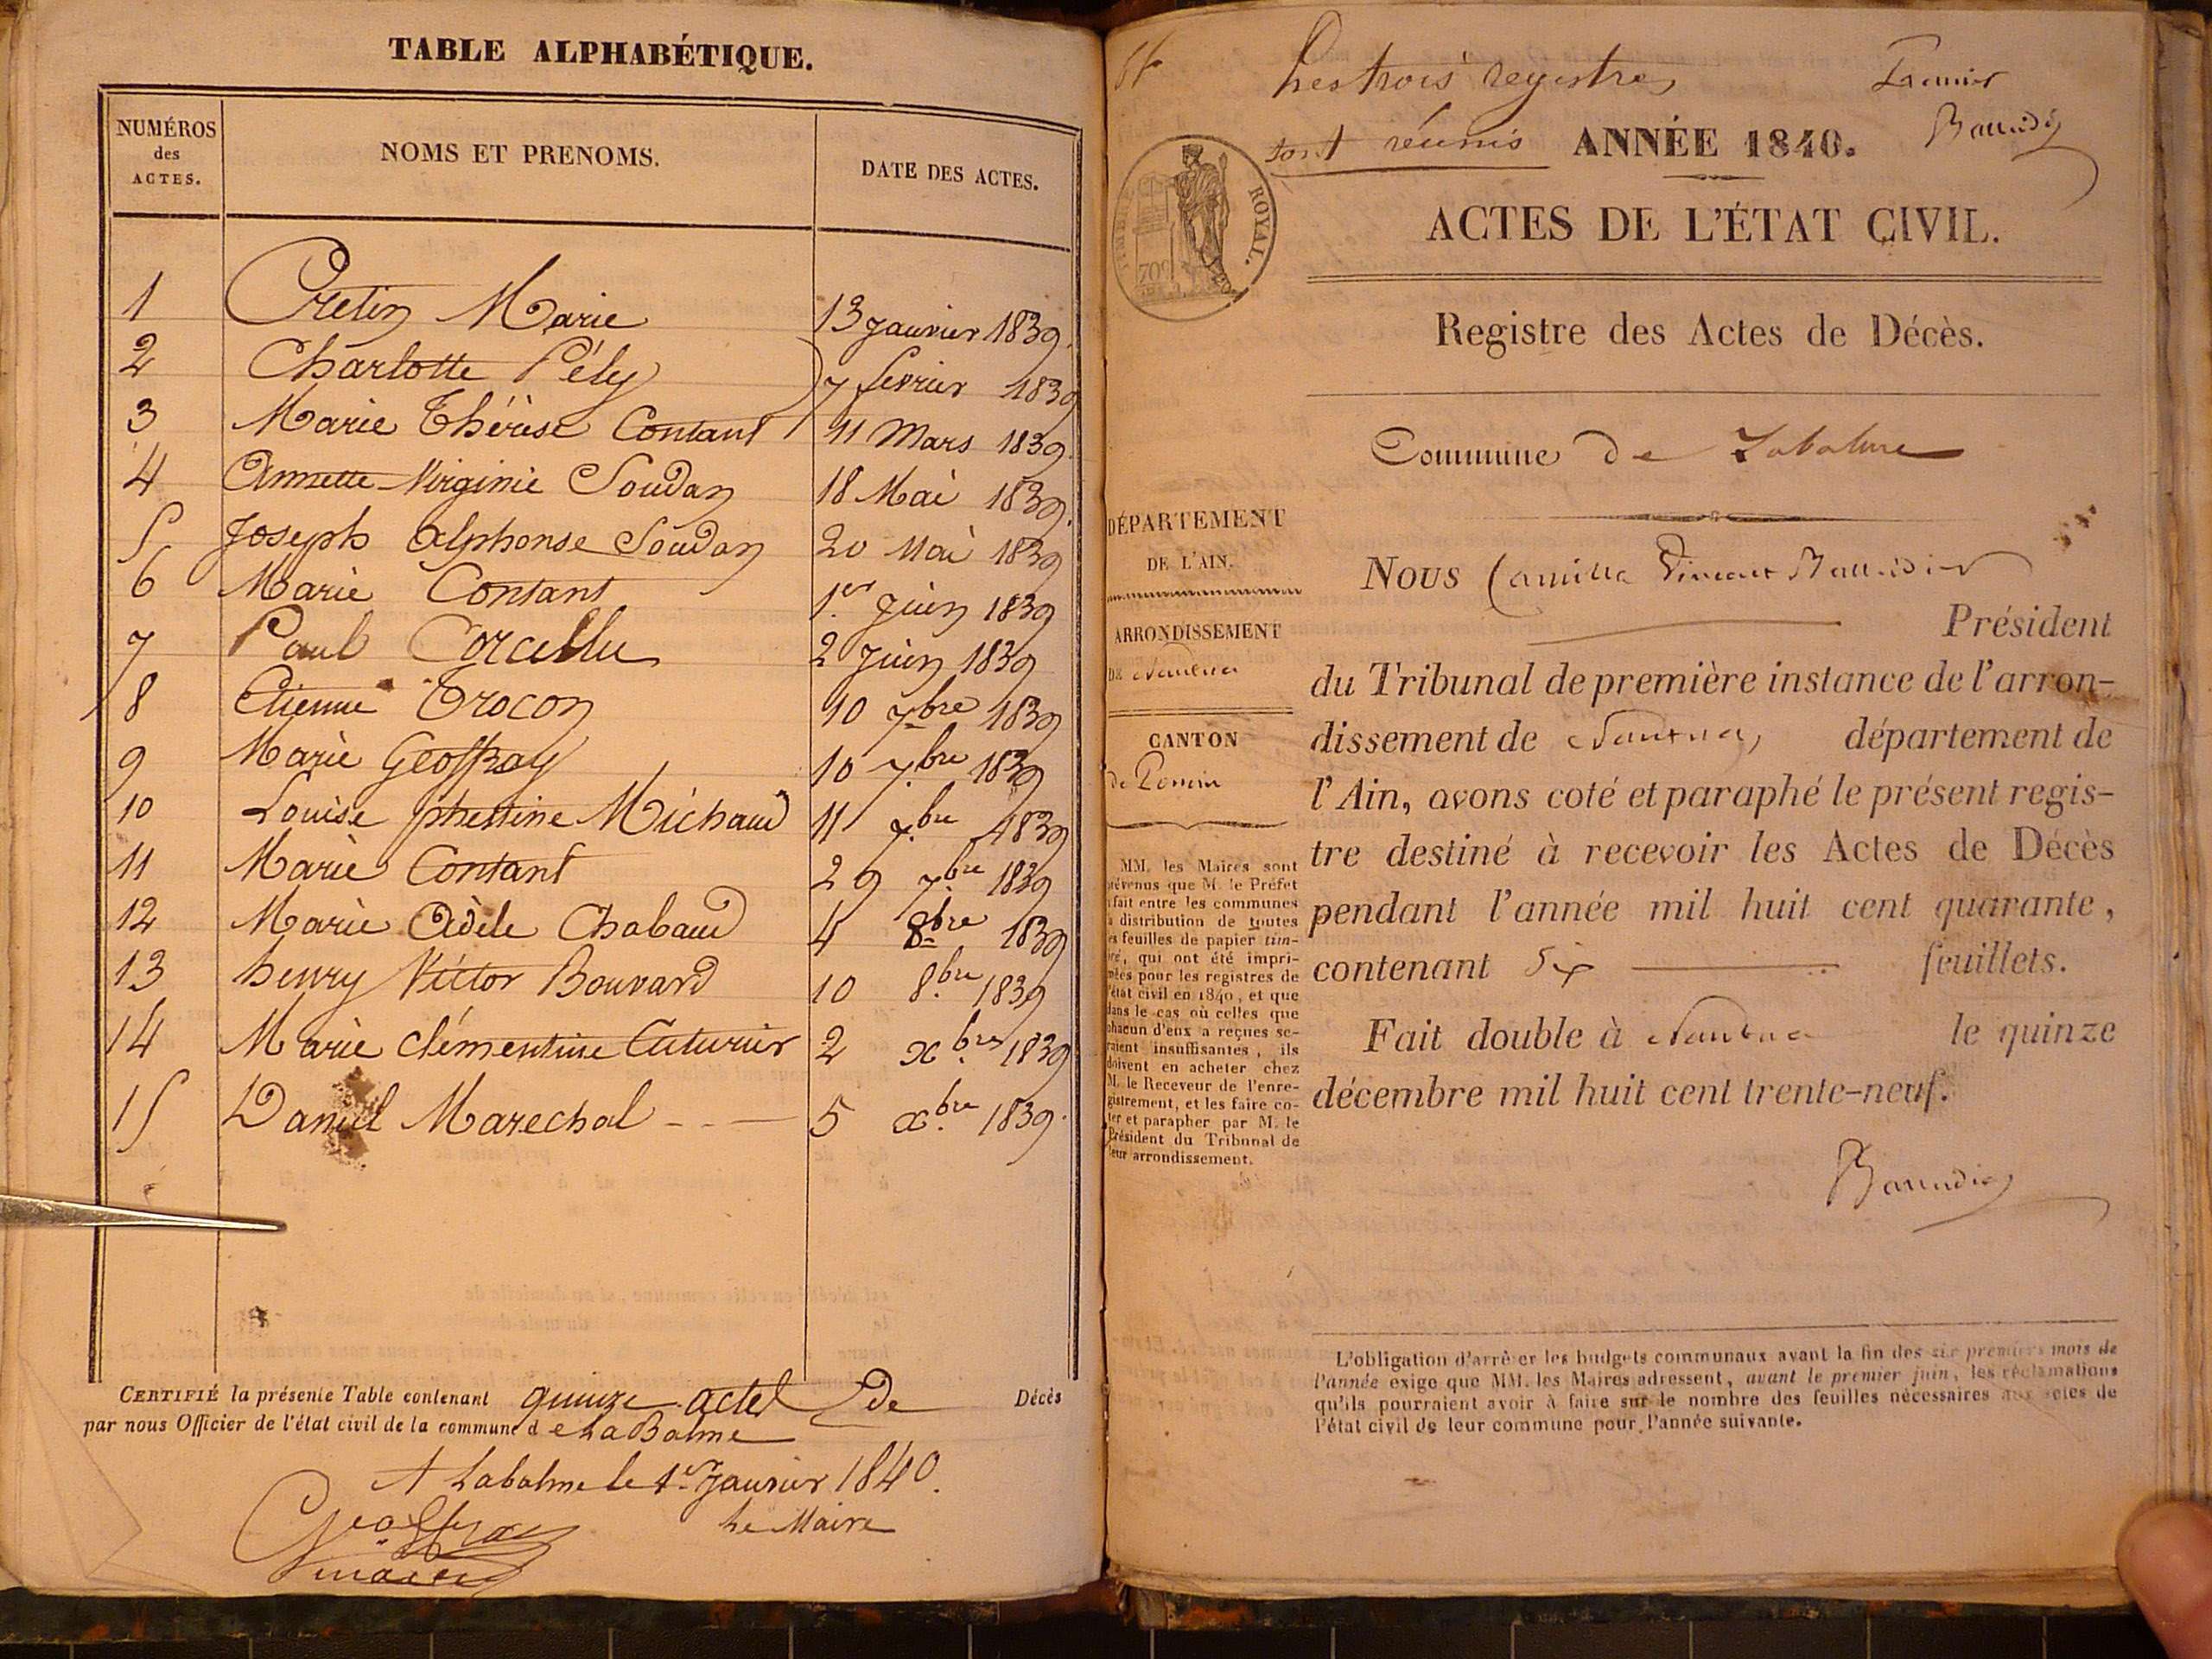 TABLE ALPHABÉTIQUE.
NUMÉROS des ACTES.
NOMS ET PRENOMS.
DATE DES ACTES.
1 Cretin Marie 13 Janvier 1839.
2 Charlotte Pély 7 fevrier 1839
3 Marie Thérèse Contant 11 Mars 1839.
4 Annette Virginie Soudan 18 Mai 1839.
5 Joseph Alphonse Soudan 20 Mai 1839
6 Marie Contant 1.er Juin 1839
7 Paul Corcellu 2 Juin 1839
8 Etienne Trocon 10 7bre 1839
9 Marie Geoffray 10 7.bre 1839
10 Louise Michaud 11 7.bre 1839
11 Marie Contant 29 7.bre 1839
12 Marie Adèle Chabaud 4 8bre 1839
13 henry Victor Bouvard 10 8.bre 1839
14 Marie clémentine Cuturier 2 x.bre 1839
15 Daniel Marechal 5 x.bre 1839.
CERTIFIÉ la présente Table contenant quinze actes De Décès
par nous Officier de l'état civil de la commune de La Balme
A Labalme le 1er Janvier 1840.
Le Maire
Geoffray
Les trois registres
sont réunis
Premier
Baudier
ROYAL.
ANNÉE 1840.
ACTES DE L'ÉTAT CIVIL.
Registre des Actes de Décès.
Commune de Labalme
DÉPARTEMENT
DE L'AIN.
ARRONDISSEMENT
DE Nantua
CANTON
de Poncin
MM. les Maires sont
prévenus que M. le Préfet
fait entre les communes
la distribution de toutes
les feuilles de papier tim-
bré, qui ont été impri-
mées pour les registres de
l'état civil en 1840, et que
dans le cas où celles que
chacun d'eux a reçues se-
raient insuffisantes, ils
doivent en acheter chez
M. le Receveur de l'enre-
gistrement, et les faire co-
ter et parapher par M. le
Président du Tribunal de
leur arrondissement.
Nous Camille Vincent
Président
du Tribunal de première instance de l'arron-
dissement de Nantua, département de
l'Ain, avons coté et paraphé le présent regis-
tre destiné à recevoir les Actes de Décès
pendant l'année mil huit cent quarante,
contenant Six feuillets.
Fait double à Nantua le quinze
décembre mil huit cent trente-neuf.
L'obligation d'arrêter les budgets communaux avant la fin des six premiers mois de
l'année exige que MM. les Maires adressent, avant le premier juin, les réclamations
qu'ils pourraient avoir à faire sur le nombre des feuilles nécessaires aux actes de
l'état civil de leur commune pour l'année suivante.